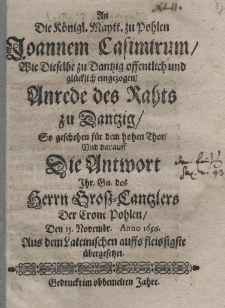 An
Die Königl. Maytt. zu Pohlen
Joannem Casimirum/
Wie Dieselbe zu Dantzig offentlich und
glücklich eingezogen/
Anrede des Rahts
zu Dantzig/
So geschehen für dem hohen Thor/
Und darauff
Die Antwort
Ihr. Gn. des
Herrn Groß-Cantzlers
Der Crone Pohlen/
Den 15. Novembr. Anno 1650.
Aus dem Lateinischen auffs fleissigste
übergesetzet.
Gedruckt im obbemelten Jahre.